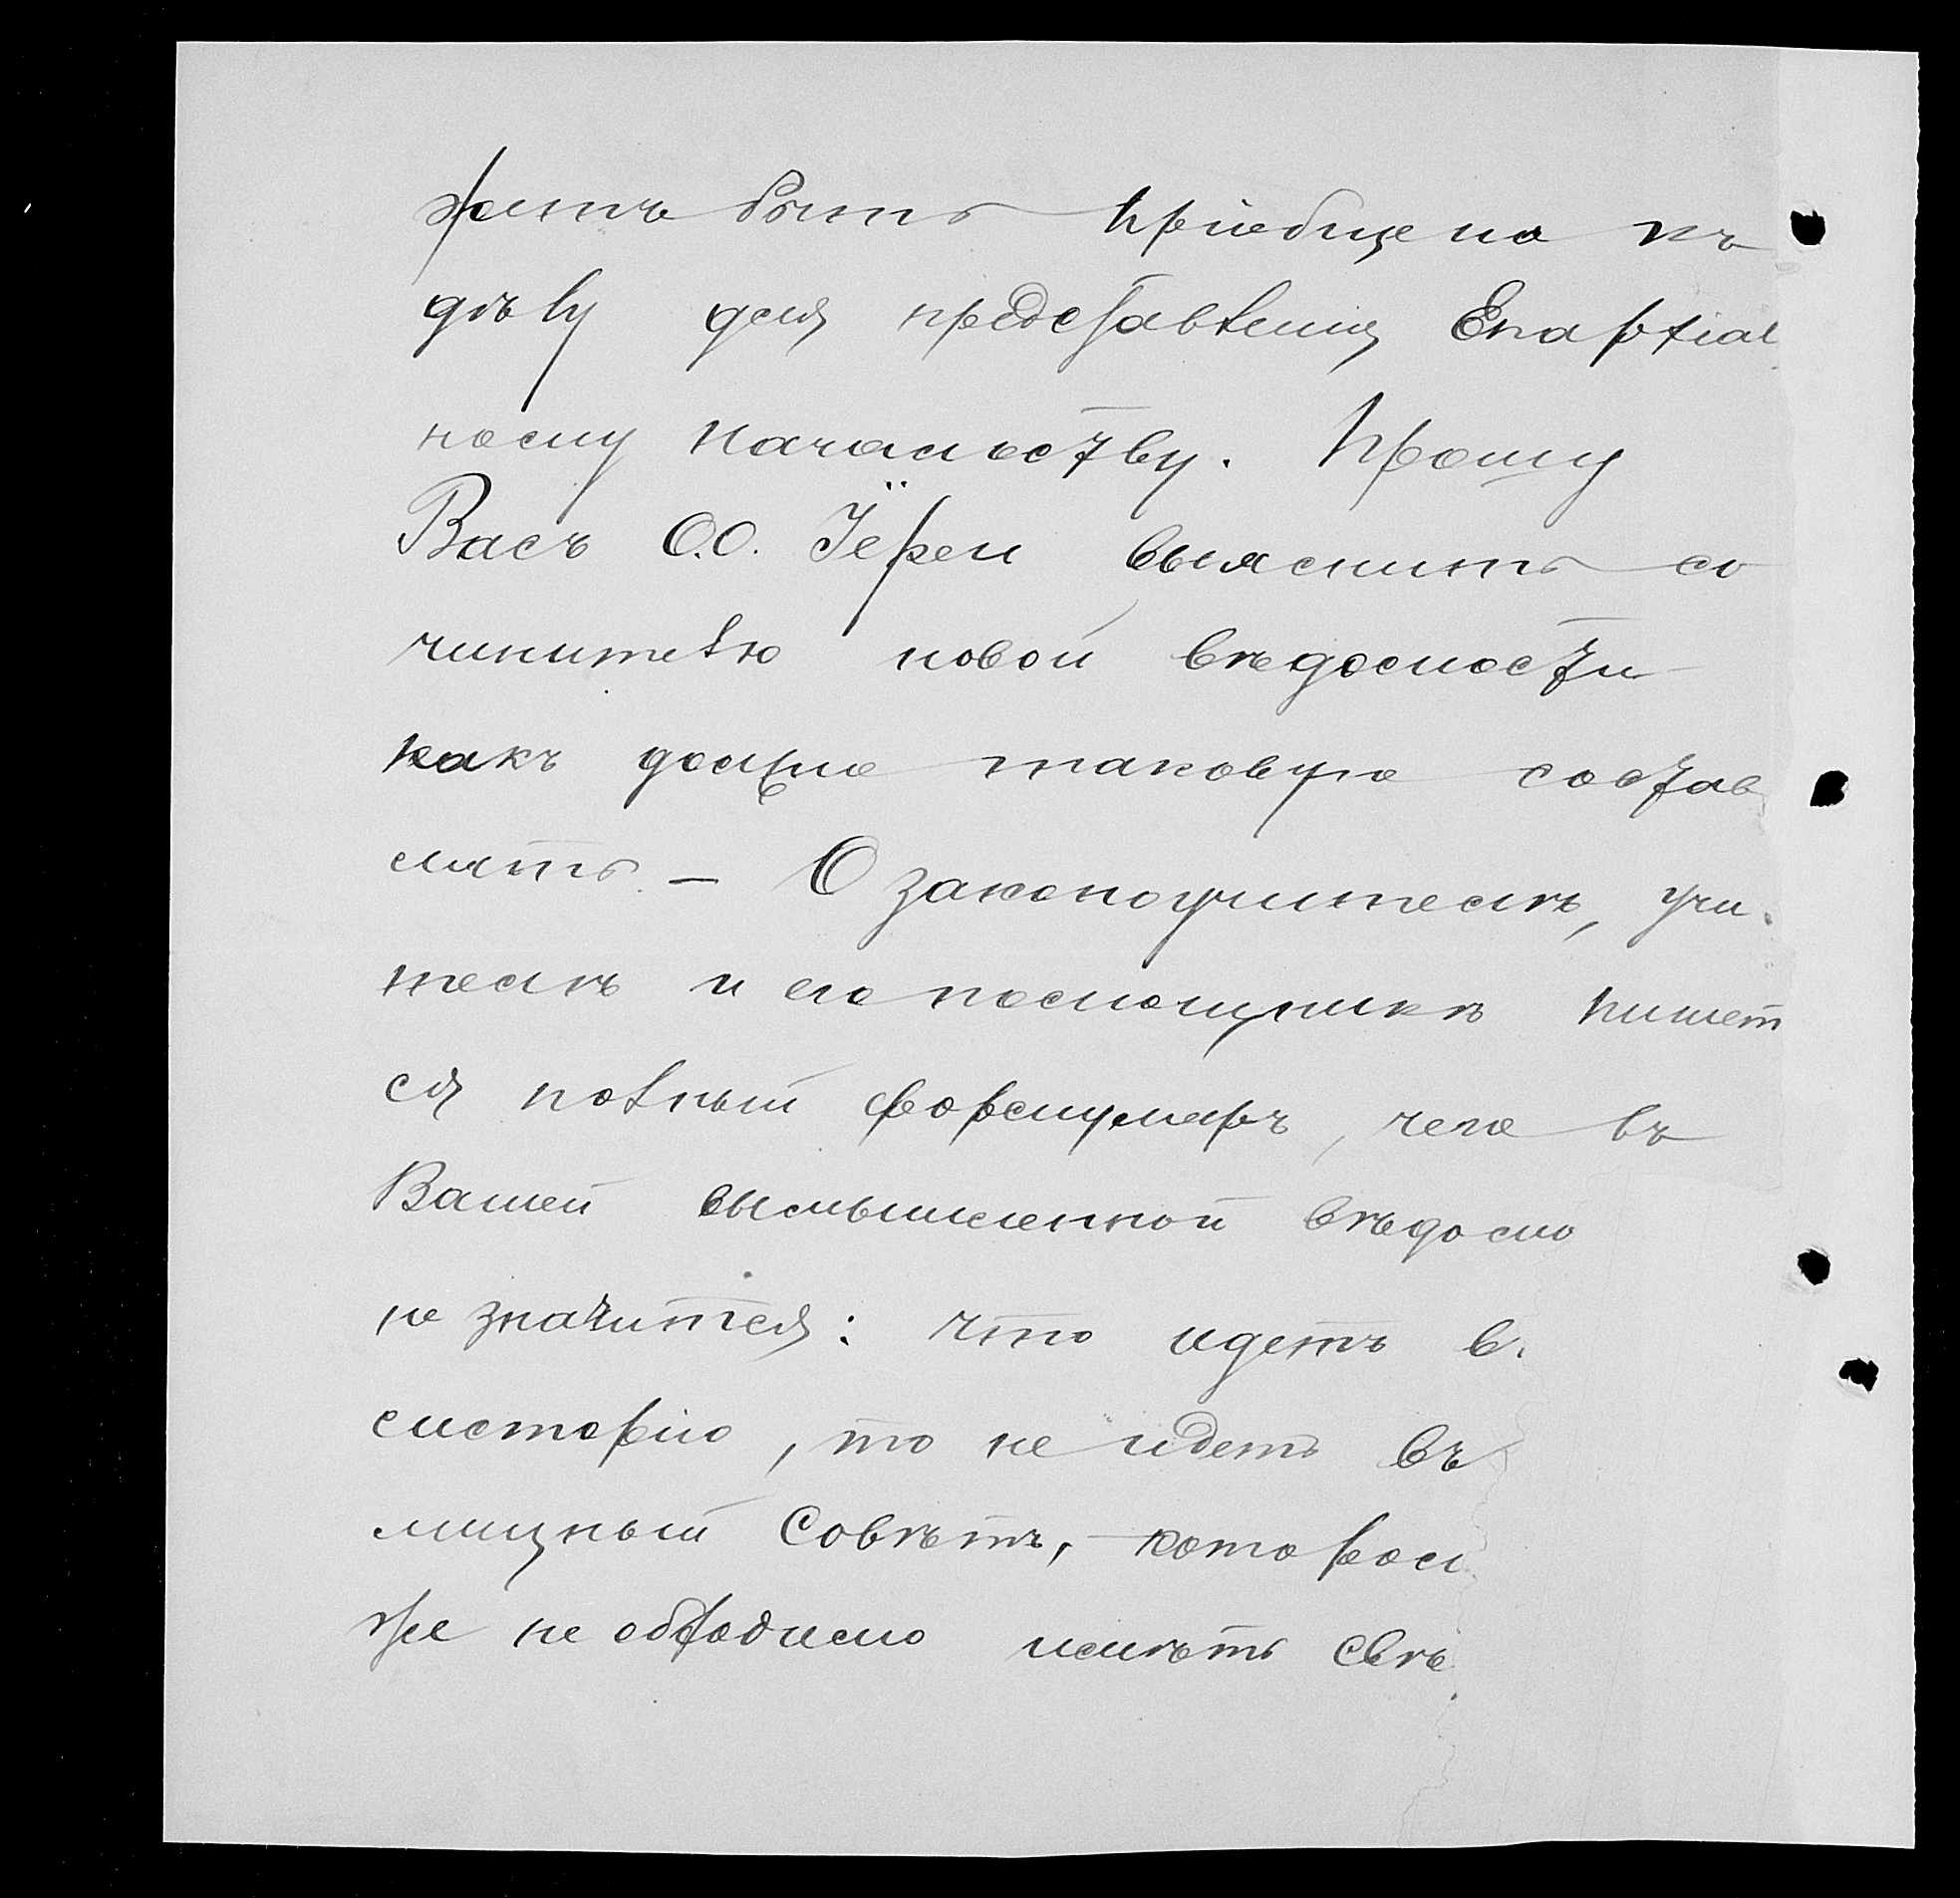 житъ быть пріобщена къ
дѣлу для представленія Епархіал
ному начальству. Прошу
Васъ О.О. Іереи выяснить со
чинителю новой вѣдомости
какъ должно таковую состав
лять. — О законоучителѣ, учи
телѣ и его помощникѣ пишет
ся полный формуляръ, чего въ
Вашей вымышленной вѣдомо
не значится: что идетъ в.
систорію, то не идетъ въ
лищный Совѣтъ, котором
же необходимо имѣть свѣ